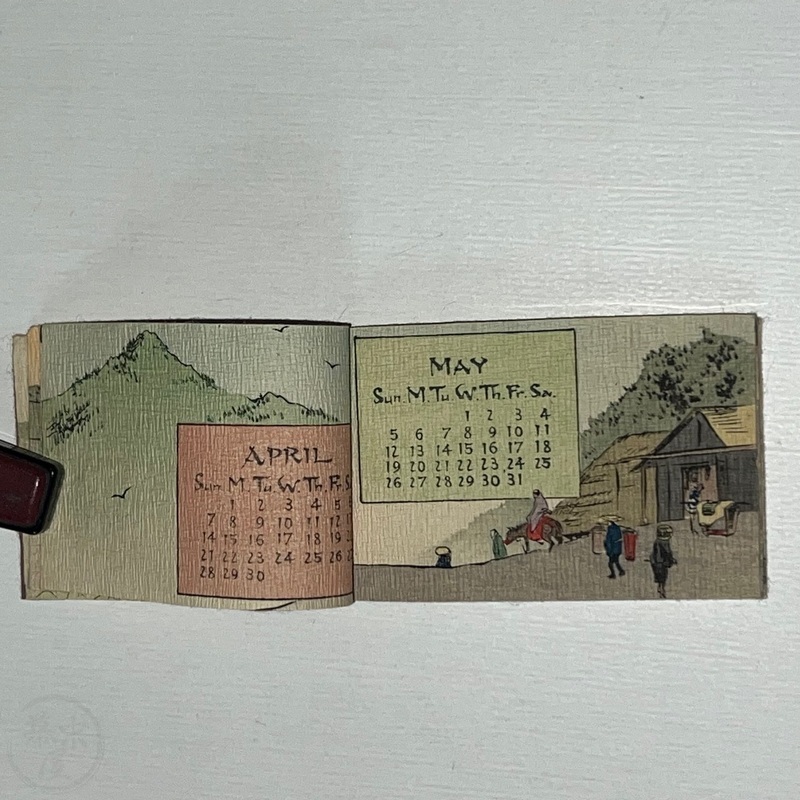 APRIL
Sun. M. Tu W. Th. Fr. S
1 2 3 4 5
7 8 9 10 11 12 1
14 15 16 17 18 19 2
21 22 23 24 25 26 2
28 29 30
MAY
Sun. M. Tu W. Th. Fr. Sa.
1 2 3 4
5 6 7 8 9 10 11
12 13 14 15 16 17 18
19 20 21 22 23 24 25
26 27 28 29 30 31